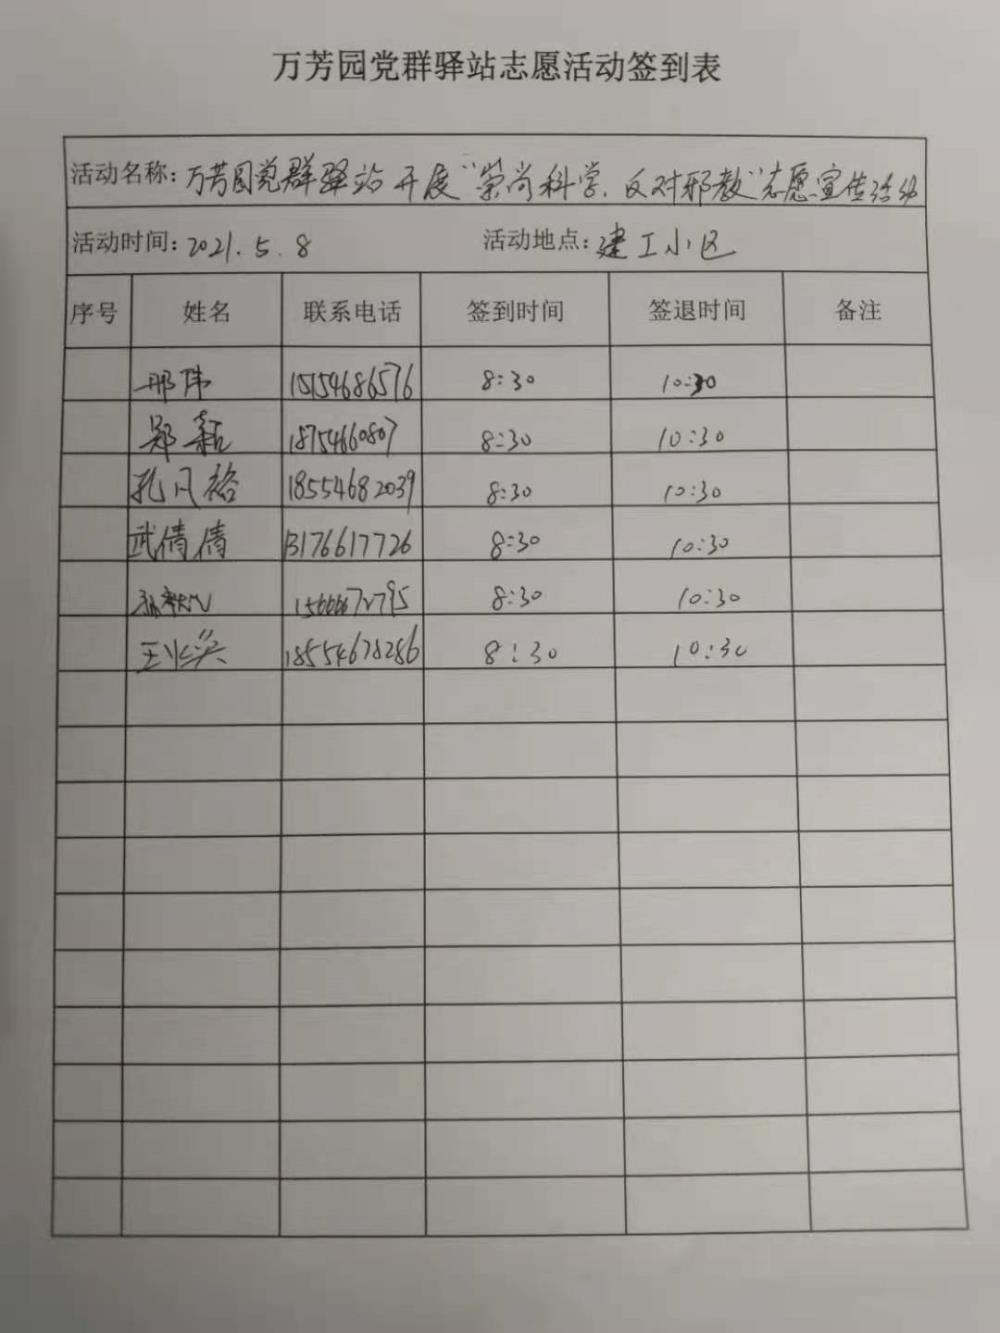 万芳园党群驿站志愿活动签到表
活动名称：万芳园党群驿站开展“崇尚科学、反对邪教”志愿宣传活动
活动时间：2021.5.8 活动地点：建工小区
序号 姓名 联系电话 签到时间 签退时间 备注
邢伟 15154686576 8:30 10:30
郑 18754660807 8:30 10:30
孔凡裕 18554682039 8:30 10:30
武倩倩 13176617726 8:30 10:30
8:30 10:30
王 18554678286 8:30 10:30